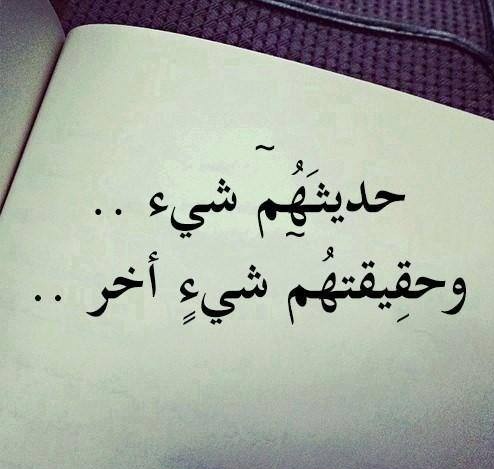 حديثَهُِم̃ شيء ..
وحقِيقتهُم̃ شيءٍ أخر ..